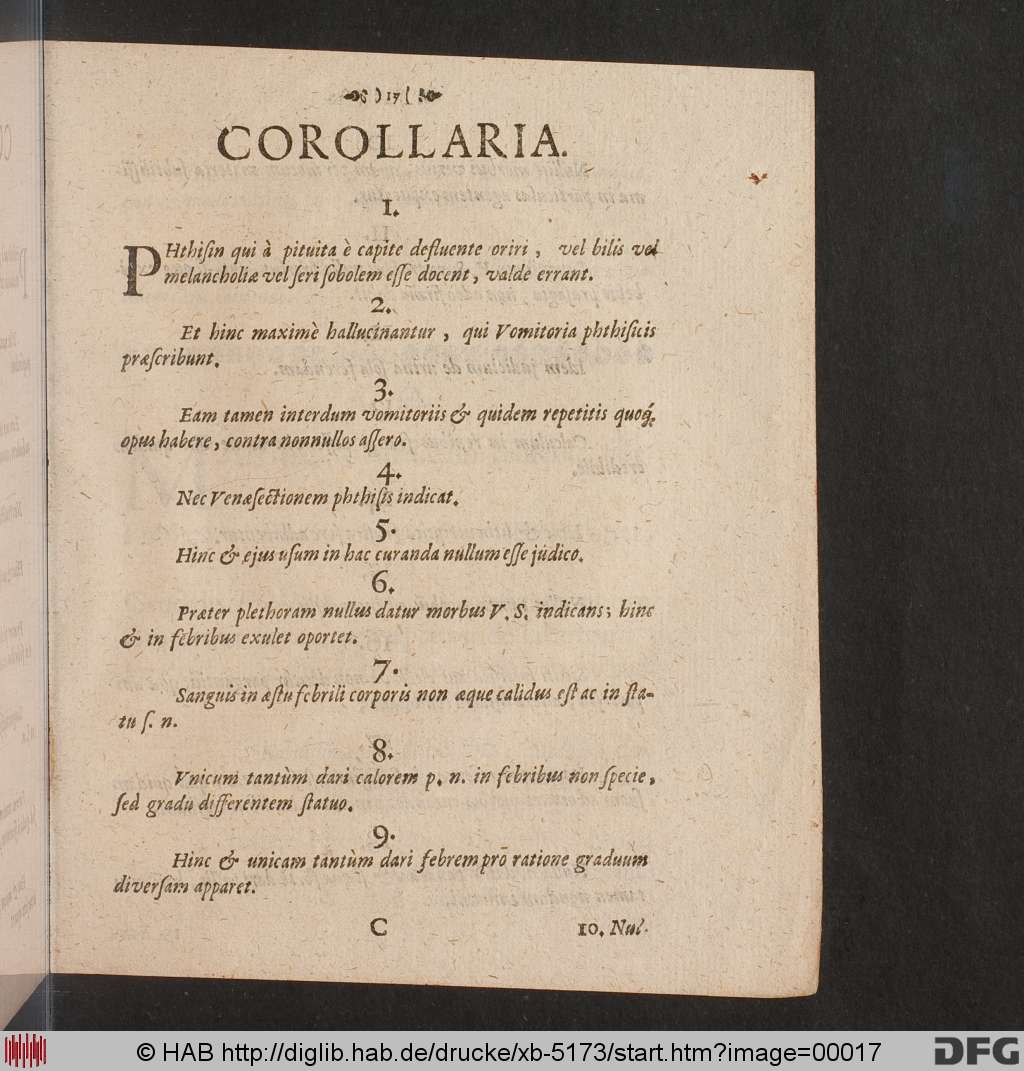 ) 17 (
COROLLARIA.
1.
PHthiſin qui à pituita è capite defluente oriri, vel bilis vel
melancholiæ vel ſeri ſobolem eſſe docent, valde errant.
2.
Et hinc maximè hallucinantur, qui Vomitoria phthiſicis
præſcribunt.
3.
Eam tamen interdum vomitoriis & quidem repetitis quoq́;
opus habere, contra nonnullos aſſero.
4.
Nec Venæſectionem phthiſis indicat.
5.
Hinc & ejus uſum in hac curanda nullum eſſe judico.
6.
Præter plethoram nullus datur morbus V. S. indicans; hinc
& in febribus exulet oportet.
7.
Sanguis in æſtu febrili corporis non æque calidus eſt ac in ſta-
tu ſ. n.
8.
Vnicum tantùm dari calorem p. n. in febribus non ſpecie,
ſed gradu differentem ſtatuo.
9.
Hinc & unicam tantùm dari febrem prō ratione graduum
diverſam apparet.
C 10. Nul-
© HAB http://diglib.hab.de/drucke/xb-5173/start.htm?image=00017
DFG